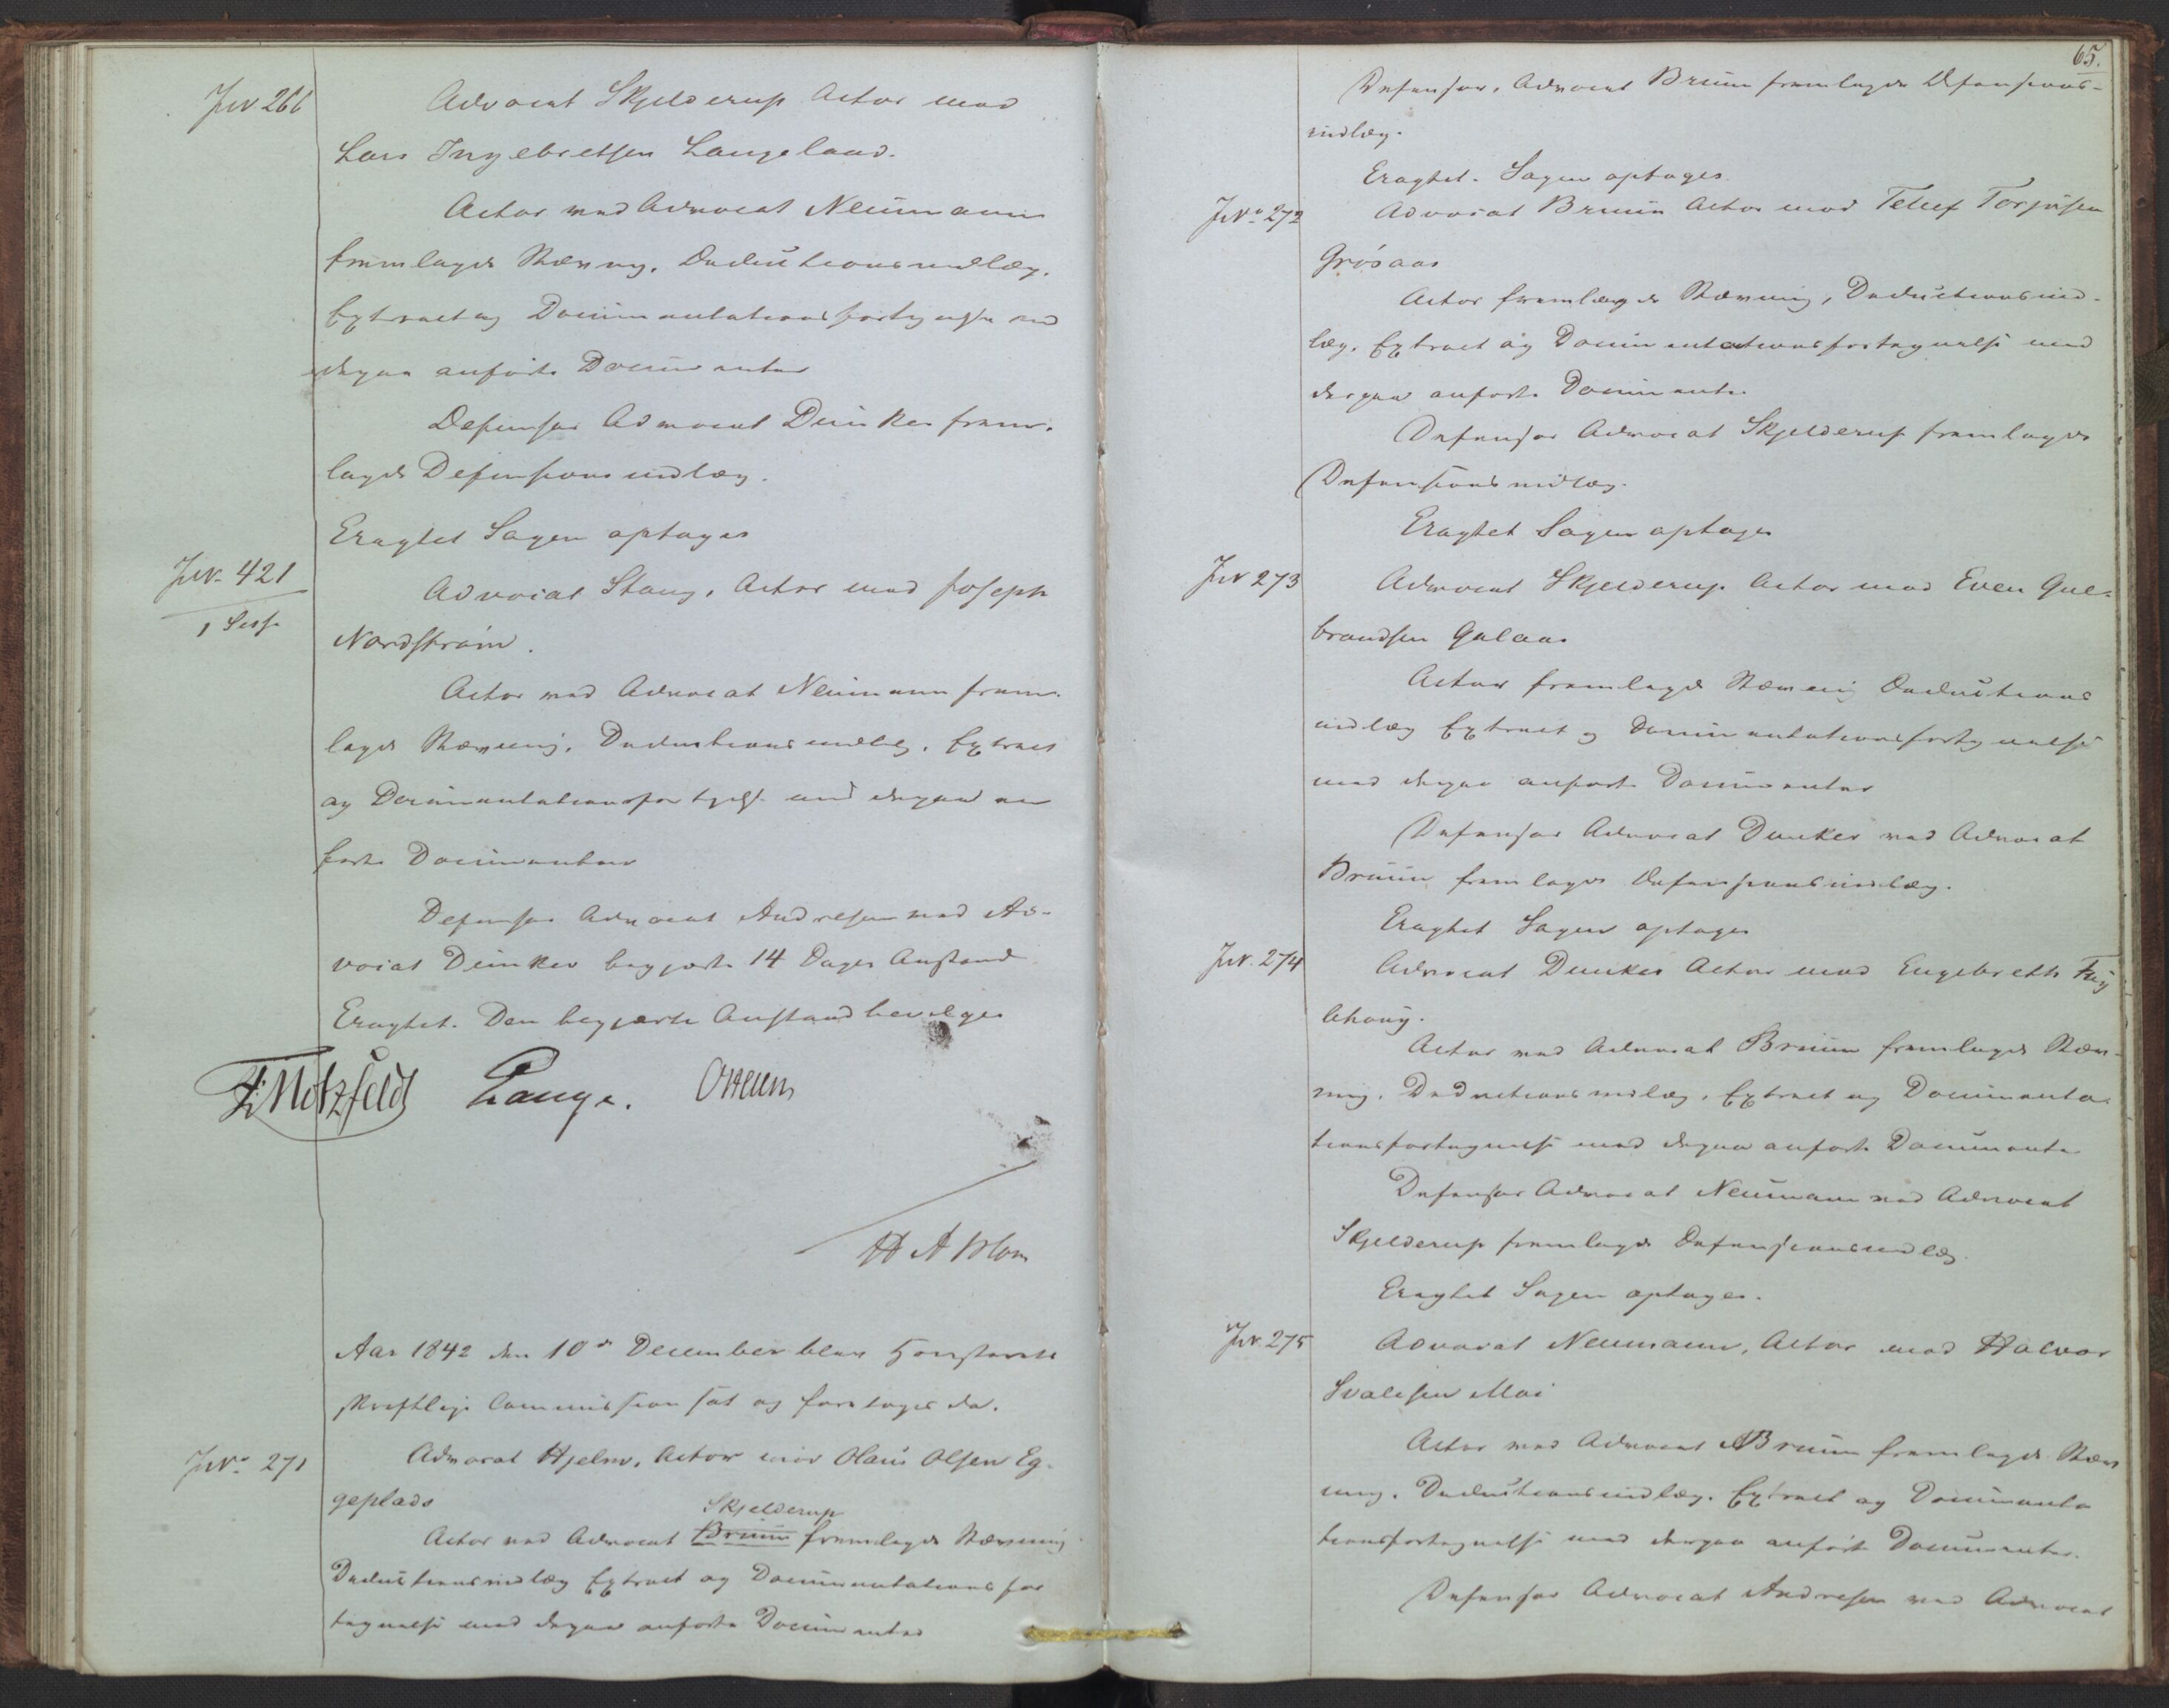 JNr 266
Advocat Skjelderup Actor mod
Lars Ingebretsen Langeland.
Actor ved Advocat Neumann
fremlagde Stævning, Deductionsindlæg,
Extract og Documentationsfortegnelse med
derpaa anførte Documenter
Defensor Advocat Dunker frem-
lagde Defensionsindlæg.
Eragtet Sagen optages
JNr. 421
1 Sess.
Advocat Stang, Actor mod Joseph
Nordstrøm.
Actor ved Advocat Neumann frem-
lagde Stævning, Deductionsindlæg, Extract
og Documentationsfortegnelse med derpaa an
førte Documenter
Defensor Advocat Andresen ved Ad-
vocat Dunker begjærte 14 Dages Anstand
Eragtet. Den begjærte Anstand bevilges
Motzfeldt Lange.
H A Blom
Aar 1842 den 10de December blev Høiesterets
skriftlige Commission sat og foretoges da.
JNr. 271
Advocat Hjelm, Actor mod Olaus Olsen Eg-
geplads
Skjelderup
Actor ved Advocat Bruun fremlagde Stævning
Deductionsindlæg Extract og Documentationsfor
tegnelse med derpaa anførte Documenter
65.
Defensor, Advocat Bruun fremlagde Defensions-
indlæg.
Eragtet. Sagen optages
JNr. 272
Advocat Bruun Actor mod Tellef Torjusen
Grøsaas
Actor fremlagde Stævning, Deductionsind-
læg, Extract og Documentationsfortegnelse med
derpaa anførte Documenter
Defensor Advocat Skjelderup fremlagde
Defensionsindlæg.
Eragtet Sagen optages
JNr 273
Advocat Skjelderup Actor mod Even Gul-
brandsen Galaas
Actor fremlagde Stævning Deductions
indlæg Extract og Documentationsfortegnelse
med derpaa anførte Documenter
Defensor Advocat Dunker ved Advocat
Bruun fremlagde Defensionsindlæg.
Eragtet Sagen optages
JNr. 274
Advocat Dunker Actor mod Engebreth
Actor ved Advocat Bruun fremlagde Stæv-
ning, Deductionsindlæg, Extract og Documenta-
tionsfortegnelse med derpaa anførte Documenter
Defensor Advocat Neumann ved Advocat
Skjelderup fremlagde Defensionsindlæg.
Eragtet Sagen optages.
JNr. 275
Advocat Neumann, Actor mod Halvor
Svalesen Moi
Actor ved Advocat Bruun fremlagde Stæv
ning, Deductionsindlæg, Extract og Documenta
tionsfortegnelse med derpaa anførte Documenter.
Defensor Advocat Andresen ved Advocat